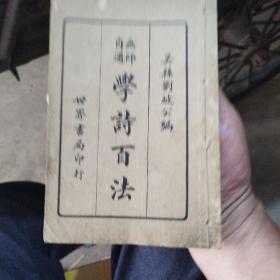 吴县劉坡公編
無師自通
學詩百法
世界書局印行